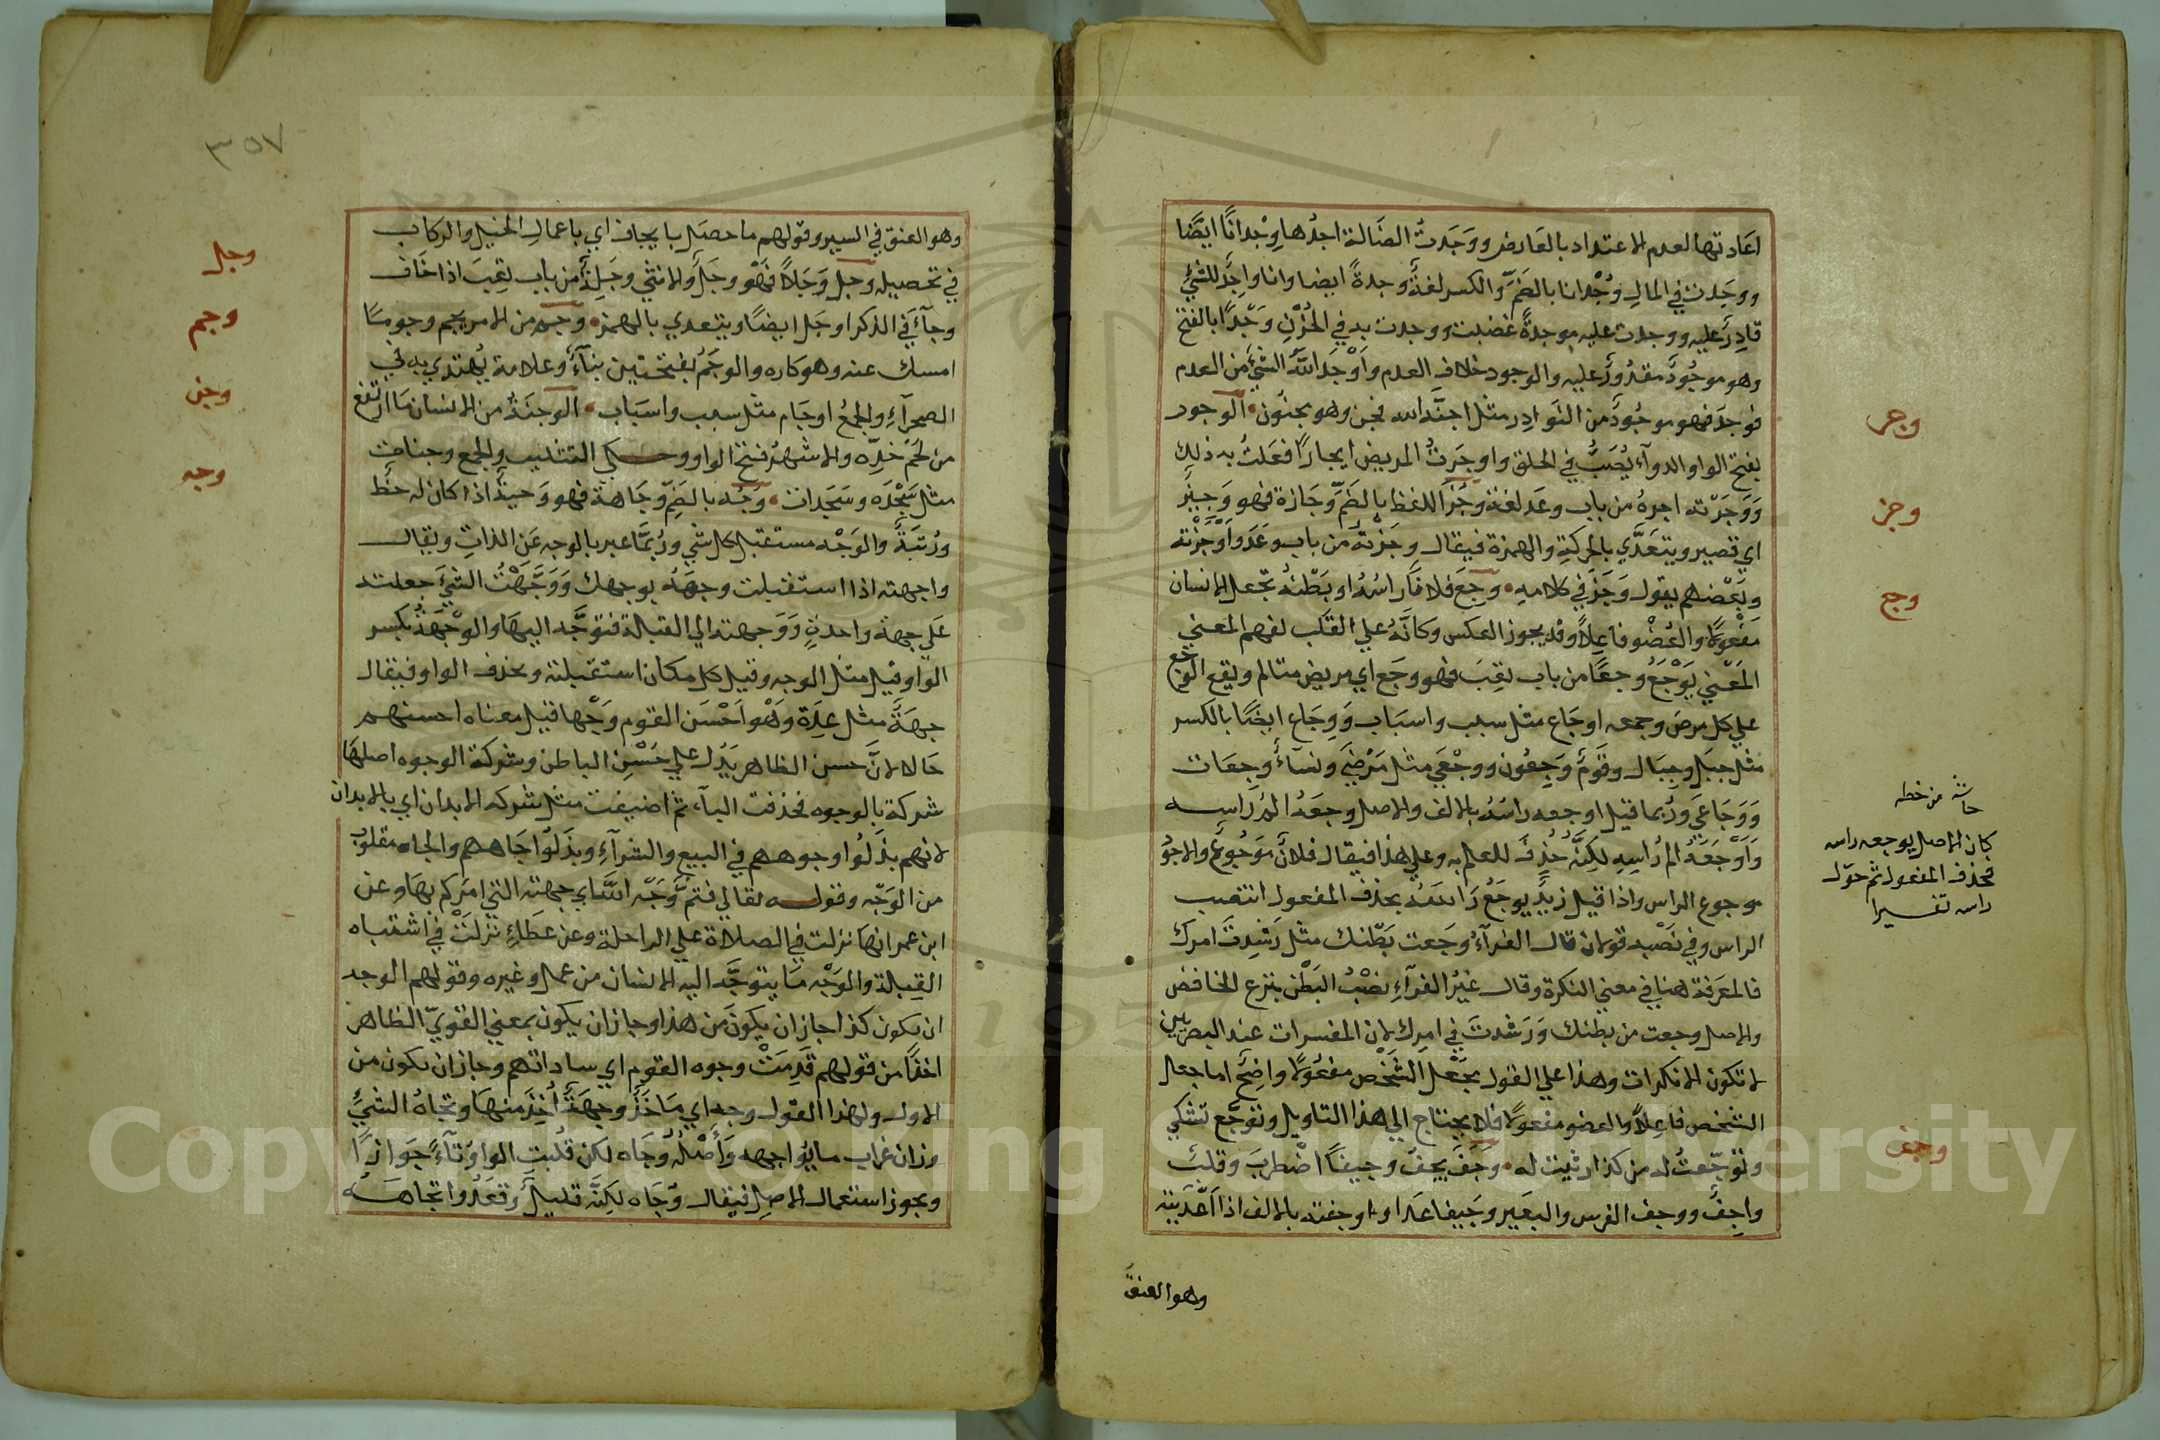 اعادتها لعدم الاعتداد بالعارض ووجدت الضالة اجدها وِجْدانًا ايضًا
ووجدت في المالِ وُجْدانا بالضمّ والكسر لغةٌ وجدةً ايضا وانا واجِدٌ للشيء
قادِرٌ عليه ووجدت عليه موجدةً غضبت ووجدت به في الحُزْنِ وَجْدًا بالفتح
وهو موجُودٌ مقدُورٌ عليه والوجود خلاف العدم واَوْجَدَ اللّٰهُ الشئَ من العدم
فوجدَ فهو موجُودٌ من النّوادِر مثل اجنّه الله فجن وهو مجنُون الوجور
بفتح الواو الدوآء يُصَبُّ في الحلق واوجَرتُ المريض ايجارًا فعَلتُ به ذلك
وَوَجَرْته اجرهُ من باب وعَد لغة وجُزَ اللفظ بالضّمّ وَجَازة فهو وَجيزٌ
اي قصير ويتعَدَّي بالحركةِ والهمزة فيقال وجَزْتهُ من باب وعَدَ واَوْجَزْته
وبَعْضهم يقول وَجَزَ في كلامهِ وجِعَ فلانًا رَاسُهُ او بَطْنهُ تجعل الانسان
مَفعْوُلًا والعُضْو فاعِلاً وقد يجوز العكس وكانّهُ علي القلب لفهم المعني
المَعْني يَوْجَعُ وجعًا من باب تعِبَ فهو وجَع اي مريض متالم ويقع الوجع
علي كل مرض وجمعه اوجَاع مثل سبب واسبَاب وَوِجَاع ايضًا بالكسر
مثل جبَل وجِبَال وقَومٌ وَجِعُون ووجْعَي مثل مَرْضَي ونسآءٌ وجِعَات
وَوَجَاعَي ورُبما قيل اوجعه راسُهُ بالالف والاصل وجعَهُ المُ راسِه
وَاَوْجَعَهُ المُ رُاسِهِ لكنّهُ حُذِفَ للعلم به وعلي هذا فيقال فلانٌ مَوجُوعٌ والاجودُ
موجوع الراس واذا قيل زيدٌ يوجَعُ رَاسَهُ بحذف المفعول انتصب
الراس وفي نَصْبه قولان قال الفرآءُ وجَعت بَطْنك مثل رَشِدتَ امرك
فالمعَرفة هنا في معني النكرة وقال غيْرُ الفرآءِ نصْبُ البَطْن بنزع الخافض
والاصل وجعت من بطنك وَرَشدتَ في امرِك لان المفسرات عند البصريين
لا تكون الا نكرات وهذا علي القول بجَعْل الشَخْص مفعُولاً واضِحٌ اما جعل
الشخص فاعِلاً والعضو مفعولًا فلا يحتاج الي هذا التاويل وتوجّع تشكي
وتوجّعتُ له من كذا رثيت له وَجَفَ يَجفُ وجيفًا اضْطرب وقلبٌ
واجفٌ ووجف الفرس والبعَير وجَيفا عَدا واوجفته بالالف اذا اَعْدَيته
وهو العنقُ
وجر
وجز
وجع
حاشية من خطه
كان الاصل يوجعه راسه
فحذف المفعول ثم حوّل
راسه تفسيرا
وجف
٣٥٧
وهو العنق في السير وقولهم ما حصَل بايجاف اي باعمالِ الخيل والركاب
في تحصيله وجِل وَجَلاً فَهْو وجَلٌ والانثي وجَلِةٌ من باب تعِبَ اذا خَاف
وجآءَ في الذكر اوجَل ايضًا ويتعدي بالهمز وجم من الامر يجم وجومًا
امسك عنه وهو كاره والوجَمُ بفتحتين بنآءٌ وعلامة يُهتدي به في
الصحرآءِ والجمعُ اوجَام مثل سبب واسبَاب الوجنَةُ من الانسان مَا ارتفع
من لَحم خَدِّه والاشهرُ فتح الواو وحكي التثليث والجمع وجنات
مثل سَجْدَه وسَجَدات وَجُه بالضَمّ وَجَاهة فهو وَجيهٌ اذا كان له حَظٌ
ورُتبَةٌ والوَجْه مستقبل كل شي ورُبمَّا عبر بالوجه عَن الذاتِ ويقال
واجهته اذا استقبلت وجهَهُ بوجهك وَوَجَّهْتُ الشئَ جعلته
عَلَي جهة واحدةٍ وَوَجهته الي القبلة فتوجَّه اليهَا والوِجْهَةُ بكسر
الواو قيل مثل الوجه وقيل كل مكان استقبلته وتحذف الواو فيقال
جهَةٌ مثل عِدَة وَهُو اَحْسَن القوم وَجْها قيل معناه احسنهم
حَالا لانّ حسن الظاهر يَدُل علي حَسْن الباطن وشركة الوجوه اصلهَا
شركة بالوجوه فحذفت البآء ثم اضيفت مثل شركه الابدان اي بالابدان
لانهم بذلُوا وجوههم في البيع والشرآءِ وبذَلُوا جَاههم والجاه مقلوبٌ
من الوَجْه وقوله تعَالي فثمّ وَجْه اللّٰه اي جهته التي امَركم بهَا وعن
ابن عمر انها نزلت في الصلاة علي الراحلة وعن عَطَآءٍ نزلَتْ في اشتباه
القِبلة والوَجْه مَا يتوجَّه اليه الانسان من عمل وغيره وقولهم الوجه
ان يكون كذا جاز ان يكونَ من هذا وجاز ان يكون بمعني القويّ الظاهر
اخذًا من قولهم قَدِمَتْ وجوه القوم اي ساداتهم وجاز ان يكون من
الاول ولهذا القول وجه اي مَاخَذٌ وجهَةٌ اُخِذَ منهَا وتجاهُ الشيءِ
وزان غراب مايُواجهه وَاَصْلُهُ وُجَاه لكن قُلبتِ الواوُ تآءً جَوَازًا
ويجوز استعمال الاصل فيقال وُجَاه لكنّه قليلٌ وقعَدُوا تجاهَهُ
وجل
وجم
وجن
وجه
Copyright © King Saud University